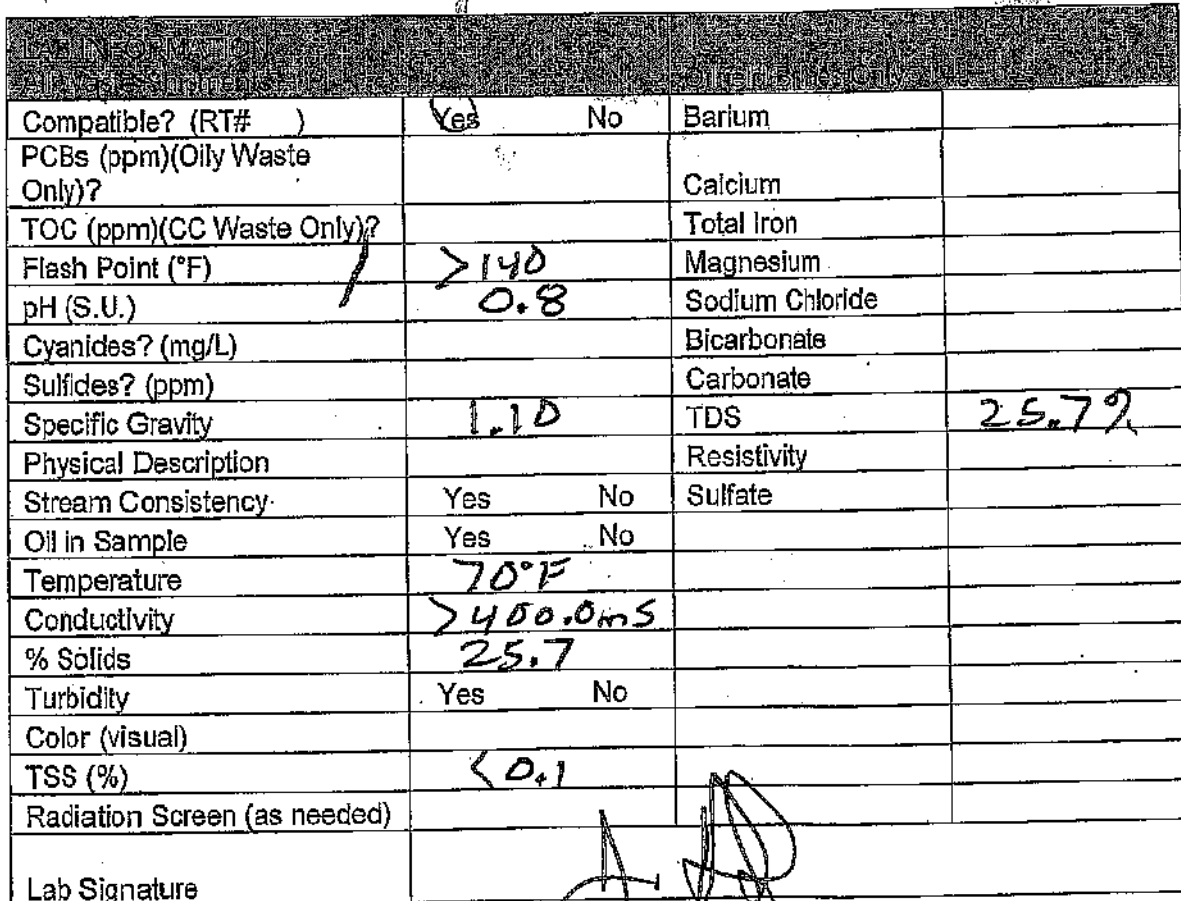 LAB INFORMATION
All Waste Shipments
Compatible? (RT# ) Yes No Barium
PCBs (ppm)(Oily Waste
Only)? Calcium
TOC (ppm)(CC Waste Only)? Total Iron
Flash Point (°F) >140 Magnesium
pH (S.U.) 0.8 Sodium Chloride
Cyanides? (mg/L) Bicarbonate
Sulfides? (ppm) Carbonate
Specific Gravity 1.10 TDS 25.7%
Physical Description Resistivity
Stream Consistency Yes No Sulfate
Oil in Sample Yes No
Temperature 70°F
Conductivity >400.0mS
% Solids 25.7
Turbidity Yes No
Color (visual)
TSS (%) <0.1
Radiation Screen (as needed)
Lab Signature